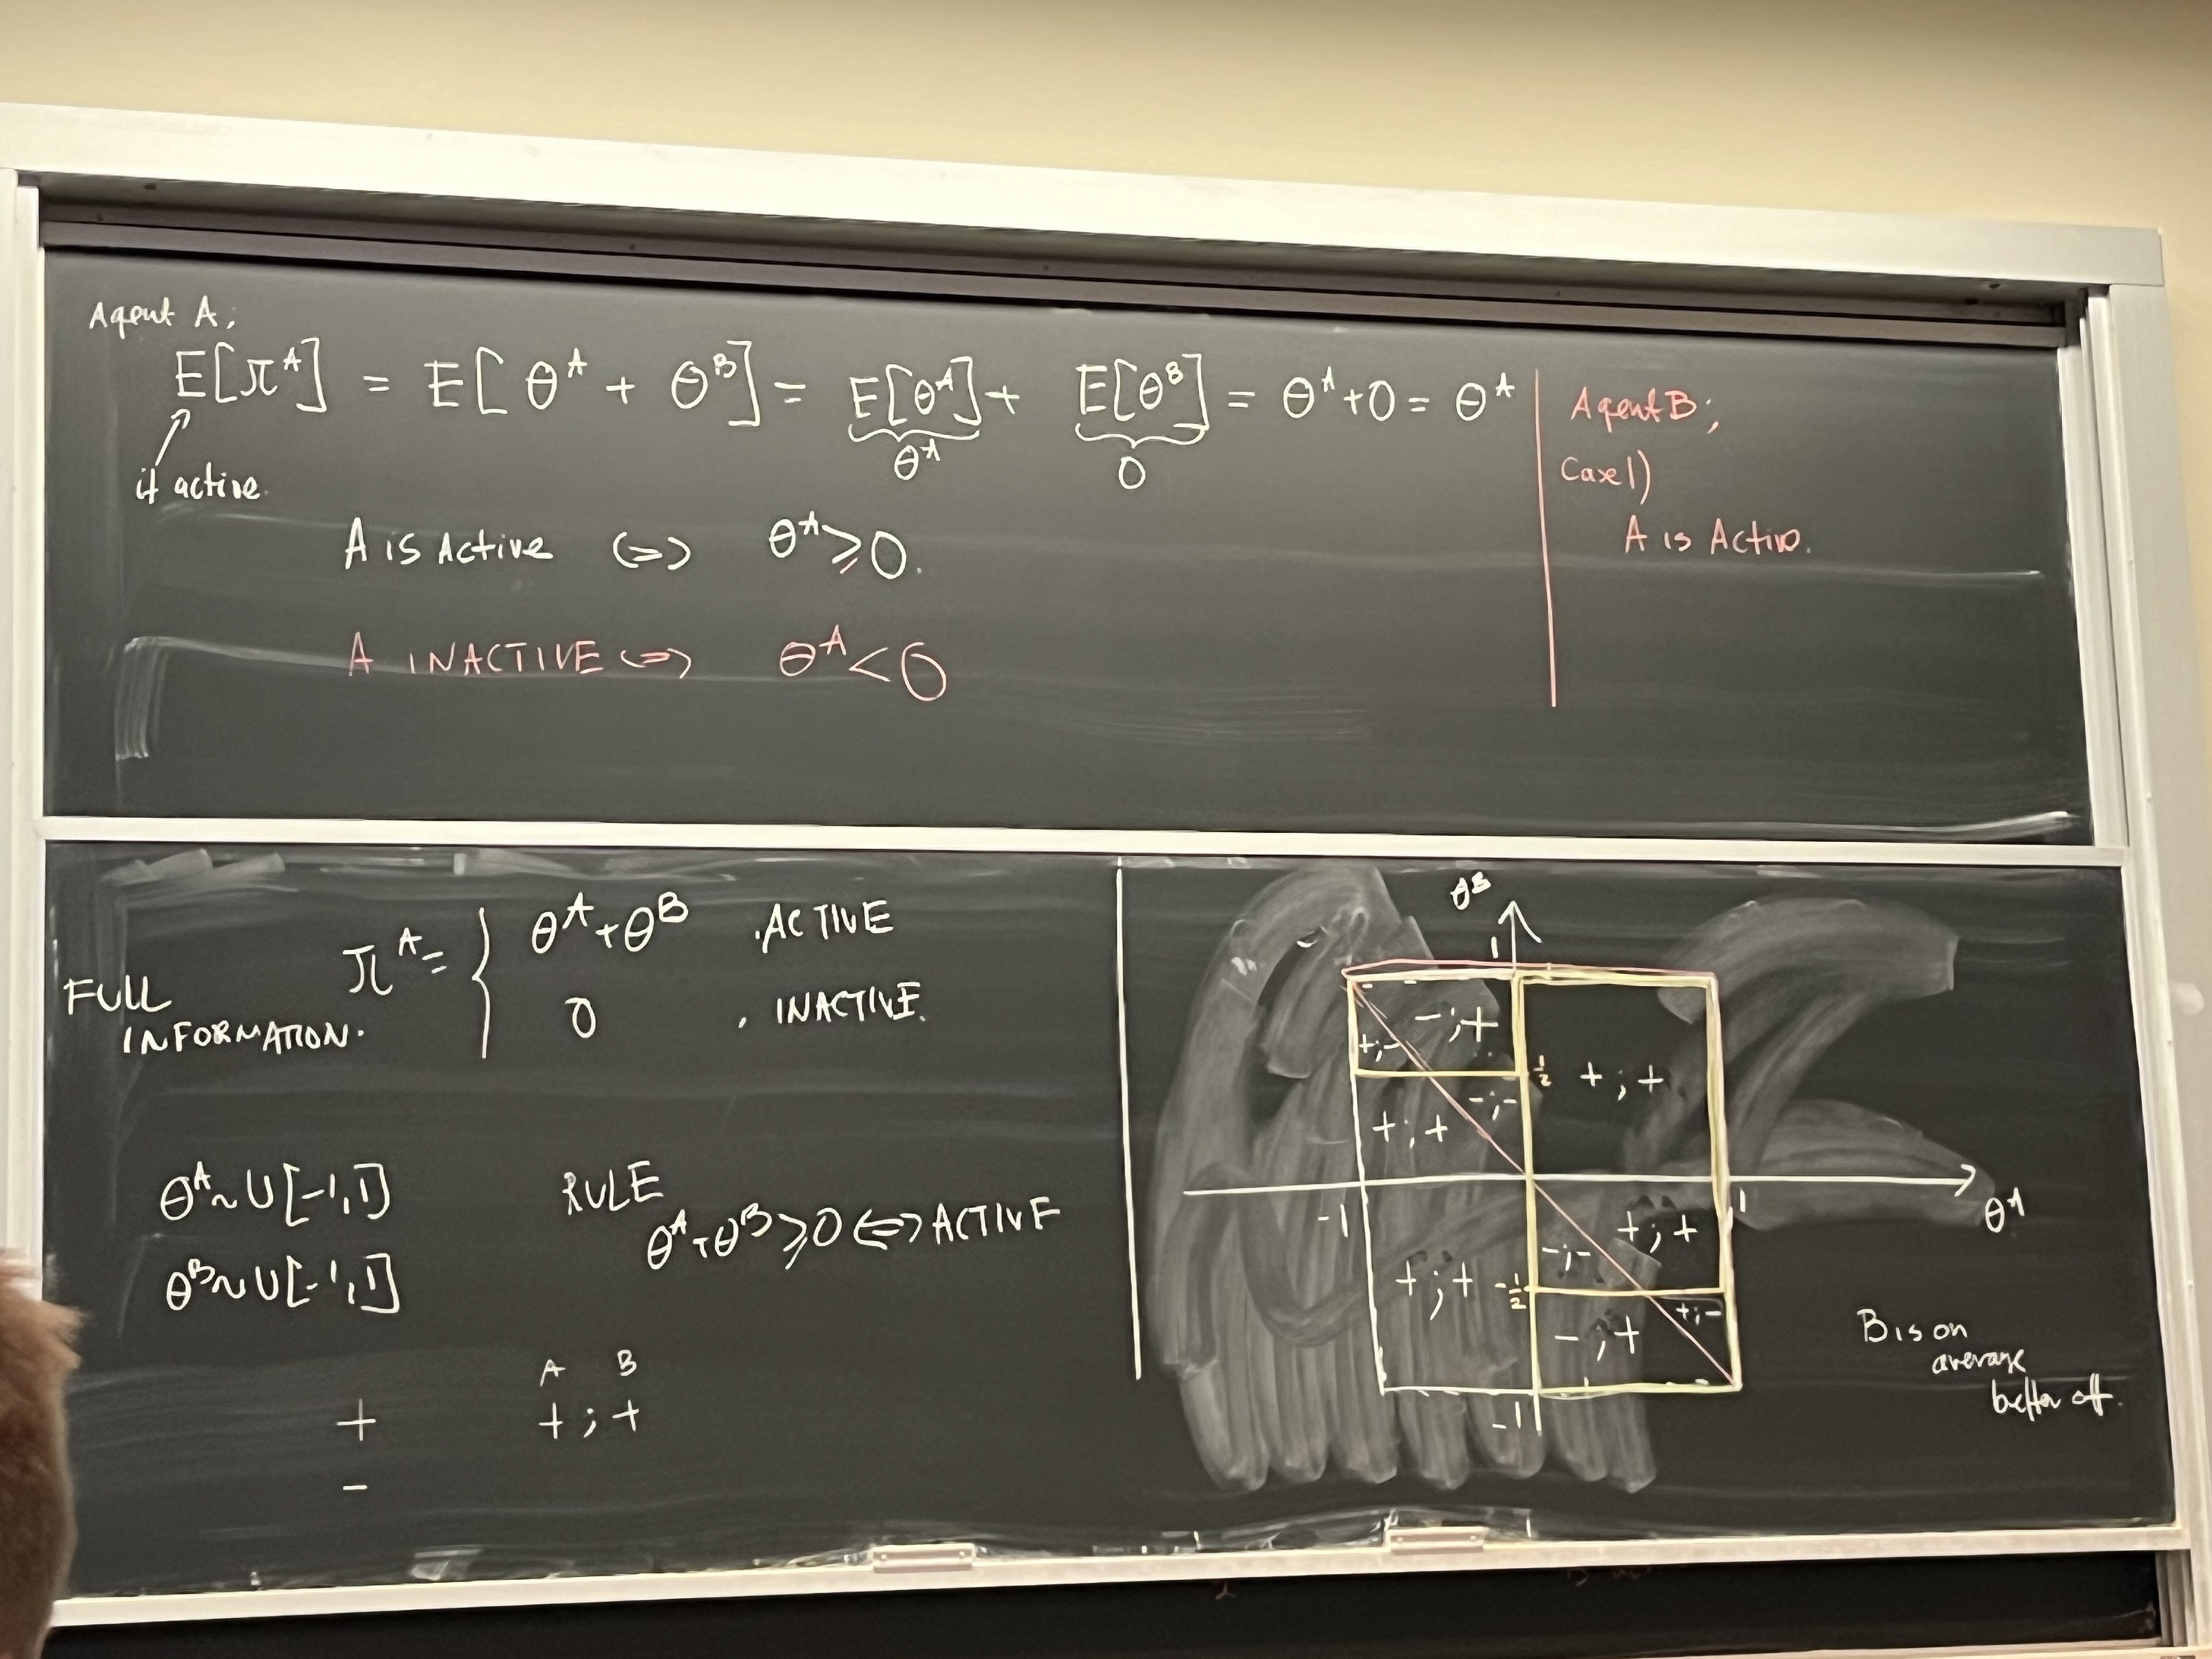 Agent A;
E[π^A] = E[θ^A + θ^B] = E[θ^A] + E[θ^B] = θ^A + 0 = θ^A
θ^A
0
if active.
A is Active <=> θ^A ≥ 0.
A INACTIVE <=> θ^A < 0
Agent B;
Case 1)
A is Active.
FULL
INFORMATION.
π^A = {
θ^A + θ^B , ACTIVE
0 , INACTIVE.
θ^A ~ U[-1,1]
θ^B ~ U[-1,1]
RULE
θ^A + θ^B ≥ 0 <=> ACTIVE
A B
+ + ; +
-
θ^B
1
- ; +
+ ; -
1/2
+ ; +
- ; -
+ ; +
-1
1
θ^A
+ ; +
- ; -
+ ; +
-1/2
+ ; -
- ; +
-1
B is on
average
better off.